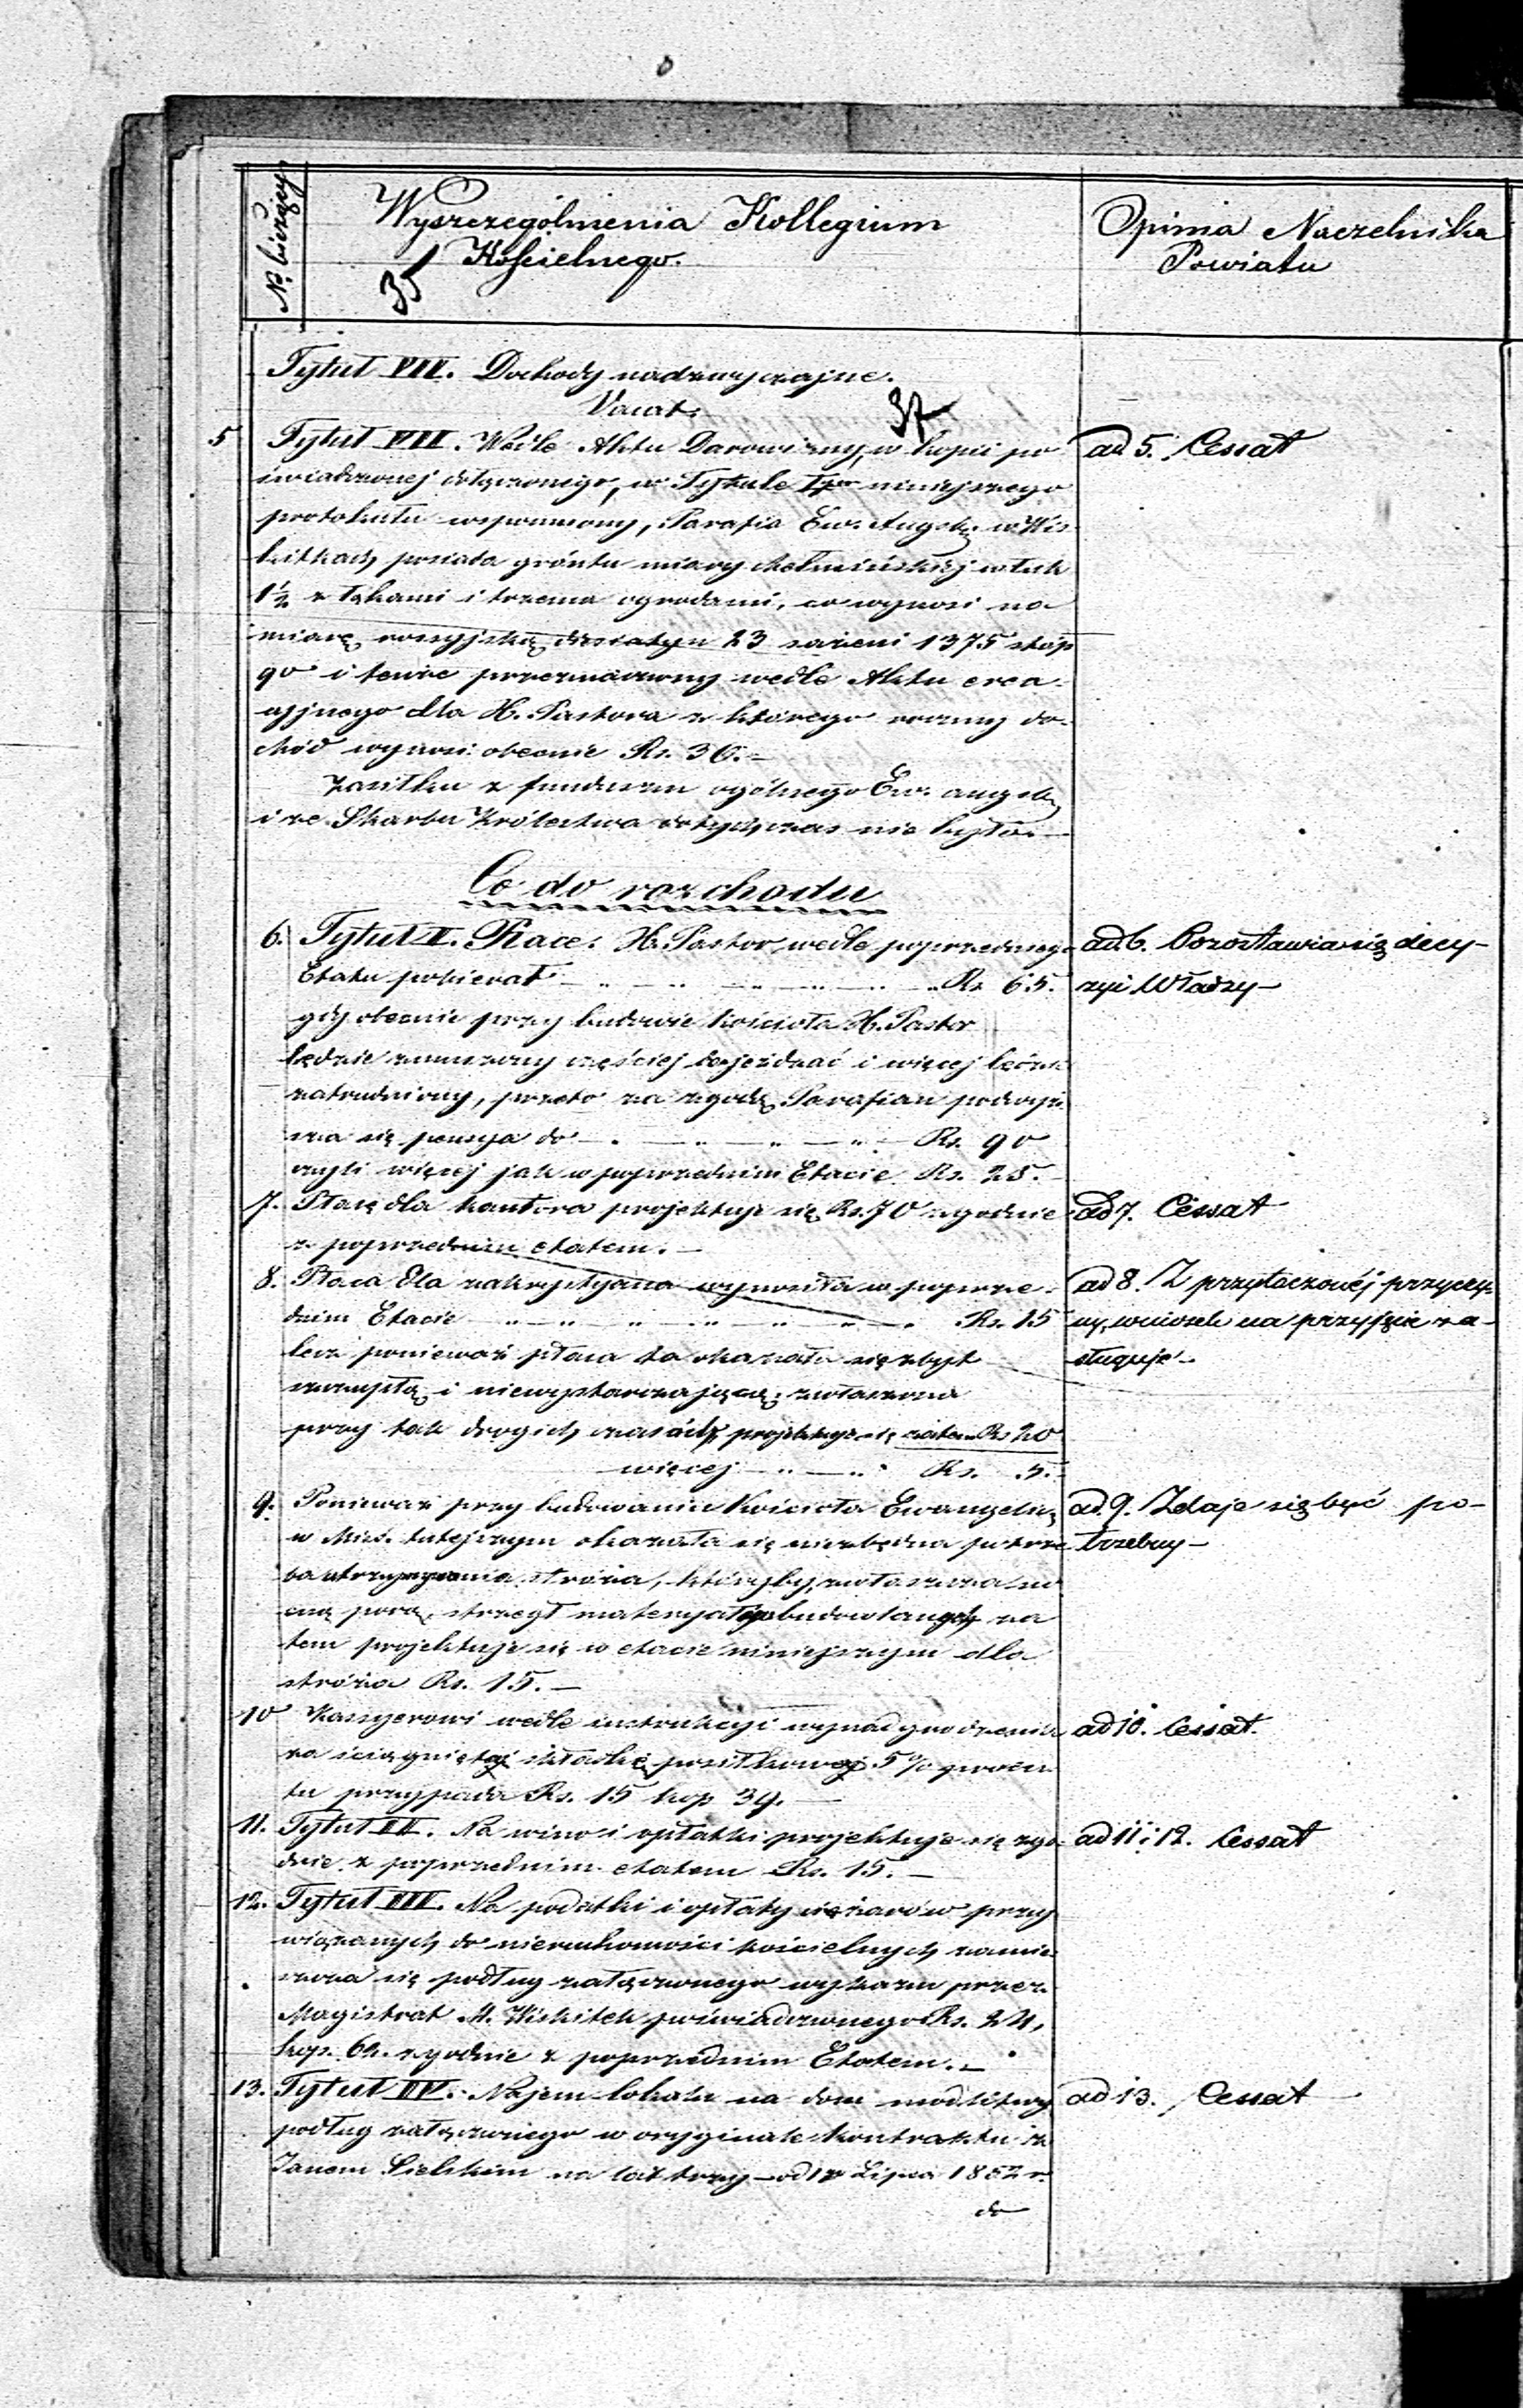 No bieżący
Wyszczególnienia Kollegium
Kościelnego.
35
Opinia Naczelnika
Powiatu
Tytuł VII. Dochody nadzwyczajne.
Vacat.
37
5 Tytuł VIII. Wedle Aktu Darowizny, w kopii po
świadczonej dołączonego, w Tytule niniejszego
protokułu wspomniony, Parafia Ew. Augsb. w Wis
kitkach posiada gróntu miary chełmińskiej włuk
1½ z łąkami i trzema ogrodami, co wynosi na
miarę rossyjską diesiatyn 23 sażeni 1375 stóp
90 i tenże przeznaczony wedle Aktu erek-
cyjnego dla X. Pastora z którego roczny do-
chód wynosi obecnie Rs. 36.-
Zasiłku z funduszu ogólnego Ew. augsb.
i ze Skarbu Królestwa dotychczas nie było.-
ad 5. Cessat
Co do rozchodu
6. Tytuł I. Płace. X. Pastor wedle poprzedniego
Etatu pobierał Rs 65.
gdy obecnie przy budowie kościoła X. Pastor
będzie zmuszony częściej dojeżdzać i więcej będzie
zatrudniony, przeto za zgodą Parafian podwyż
sza się pensya do Rs. 90
czyli więcej jak w poprzednim Etacie Rs. 25.
ad. 6. Pozostawia się decy-
zyi Władzy-
7. Płacę dla kantora projektuje się Rs. 70 zgodnie
z poprzednim etatem.-
ad 7. Cessat
8. Płaca dla zakrystyana wynosiła w poprze-
dnim Etacie Rs. 15
lecz ponieważ płaca ta okazała się zbyt
szczupłą i niewystarczającą, zwłaszcza
przy tak drogich czasach, projektuje się zatem Rs 20
więcej Rs. 5.
ad 8. Z przytoczonéj przyczy-
ny, wniosek na przyjęcie za-
sługuje-
9. Ponieważ przy budowaniu Kościoła Ewangelic.
w Mieś. tutejszym okazała się niezbędna potrze
ba utrzymywania stróża, któryby, zwłaszcza no
cną porą, strzegł materyałów budowlanych za
tem projektuje się w etacie niniejszym dla
stróża Rs. 15.-
ad. 9. Zdaje się być po-
trzebny-
10 Kassyerowi wedle instrukcyi wynadgrodzenia
za ściągniętą składkę posiłkową 5% procen
tu przypada Rs. 15 kop 39.-
ad 10. Cessat.
11. Tytuł II. Na wino i opłatki projektuje się zgo-
dnie z poprzednim etatem Rs. 15.-
ad 11 i 12. Cessat
12. Tytuł III. Na podatki i opłaty ciężarów przy
wiązanych do nieruchomości kościelnych zamie
szcza się podług załączonego wykazu przez
Magistrat M. Wiskitek poświadczonego Rs. 24,
kop. 62. zgodnie z poprzednim Etatem.-
13. Tytuł IV. Najem lokalu na dom modlitwy
podług załączonego w oryginale kontraktu z
Janem Sielskim na lat trzy - od 1go Lipca 1862 r.
do
ad 13. Cessat